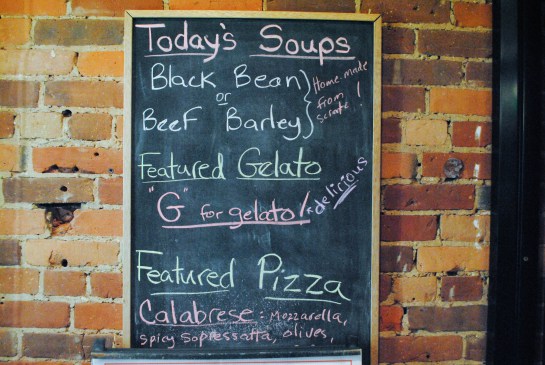 Today's Soups
Black Bean
or
Beef Barley
Home made
from
scratch!
Featured Gelato
"G" for gelato!
*delicious
Featured Pizza
Calabrese: Mozzarella,
spicy sopressatta, olives,